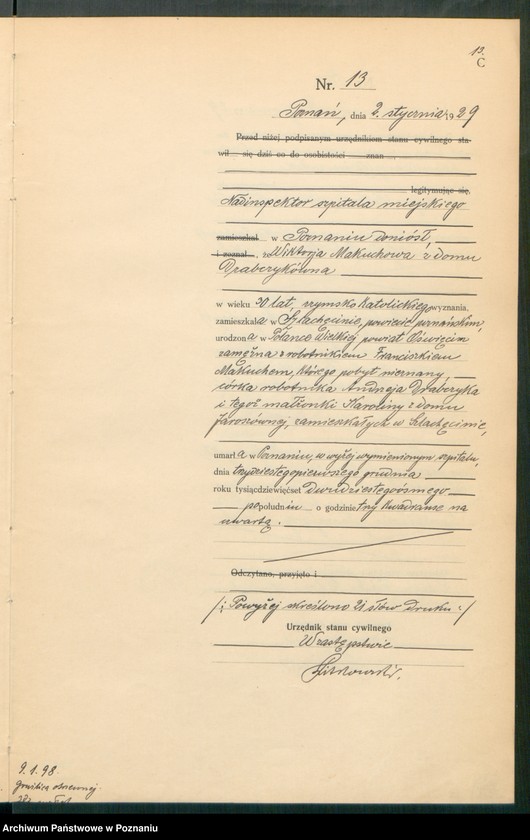 13.
C
Nr. 13
Poznań, dnia 2. stycznia 1929
Przed niżej podpisanym urzędnikiem stanu cywilnego sta-
wił się dziś co do osobistości znan
legitymując się
Nadinspektor szpitala miejskiego
zamieszkał w Poznaniu doniósł,
i zeznał, że Wiktorja Makuchowa z domu
Draberykówna
w wieku 30 lat, rzymsko katolickiego wyznania,
zamieszkała w Szlachęcinie, powiecie poznańskim,
urodzona w Polance Wielkiej powiat Oświęcim
zamężna z robotnikiem Franciszkiem
Makuchem, którego pobyt nieznany,
córka robotnika Andrzeja Draberyka
i tegoż małżonki Karoliny z domu
Jarosównej, zamieszkałych w Szlachęcinie,
umarła w Poznaniu, w wyżej wymienionym szpitalu,
dnia trzydziestegopierwszego grudnia
roku tysiącdziewięćset dwudziestegoósmego
popołudniu o godzinie trzy kwadranse na
czwartą.
Odczytano, przyjęto i
/: Powyżej skreślono 21 słów druku :/
Urzędnik stanu cywilnego
W zastępstwie
9.1.98.
Archiwum Państwowe w Poznaniu